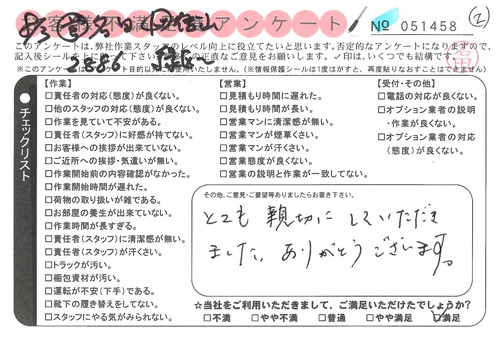 お客様不満足度アンケート
№ 051458
②
このアンケートは、弊社作業スタッフのレベル向上に役立てたいと思います。否定的なアンケートになりますので、
3886
※このアンケートは
チェックリスト
【作業】
□責任者の対応(態度)が良くない。
□他のスタッフの対応(態度)が良くない。
□作業を見ていて不安がある。
□責任者(スタッフ)に好感が持てない。
□お客様への挨拶が出来ていない。
□ご近所への挨拶・気遣いが無い。
□作業開始前の内容確認がなかった。
□作業開始時間が遅れた。
□荷物の取り扱いが雑である。
□お部屋の養生が出来ていない。
□作業時間が長すぎる。
□責任者(スタッフ)に清潔感が無い。
□責任者(スタッフ)が汗くさい。
□トラックが汚い。
□梱包資材が汚い。
□運転が不安(下手)である。
□靴下の履き替えをしてない。
□スタッフにやる気がみられない。
【営業】
□見積もり時間に遅れた。
□見積もり時間が長い。
□営業マンに清潔感が無い。
□営業マンが煙草くさい。
□営業マンが汗くさい。
□営業態度が良くない。
□営業の説明と作業が一致してない。
【受付・その他】
□電話の対応が良くない。
□オプション業者の説明
・作業が良くない。
□オプション業者の対応
(態度)が良くない。
その他、ご意見・ご要望等ありましたらお書き下さい。
とても親切にしていただき
ました。ありがとうございます。
☆当社をご利用いただきまして、ご満足いただけたでしょうか?
□不満 □やや不満 □普通 □やや満足 ☑満足